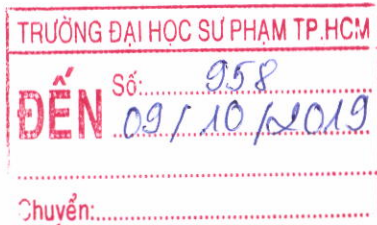 TRƯỜNG ĐẠI HỌC SƯ PHẠM TP.HCM
ĐẾN Số: 958
09/10/2019
Chuyển: